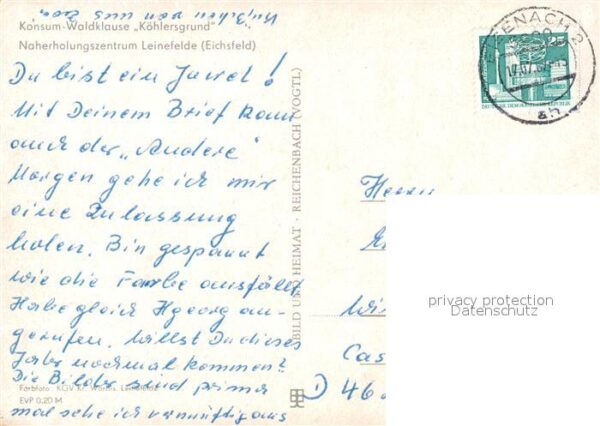 Küßchen von uns
Konsum-Waldklause „Köhlersgrund"
Naherholungszentrum Leinefelde (Eichsfeld)
Du bist ein Juwel!
Mit Deinem Brief kam
auch der „Andere"
Morgen gehe ich mir
eine Zulassung
holen. Bin gespannt
wie die Farbe ausfällt
Habe gleich Hgeorg an-
gerufen. Willst Du dieses
Jahr nochmal kommen?
Die Bilder sind prima
Farbfoto: KGV
EVP 0,20 M
mal sehe ich vernünftig aus
BILD UND HEIMAT · REICHENBACH (VOGTL)
EISENACH 2
25
DEUTSCHE DEMOKRATISCHE REPUBLIK
ah
Herrn
privacy protection
Datenschutz
D 46